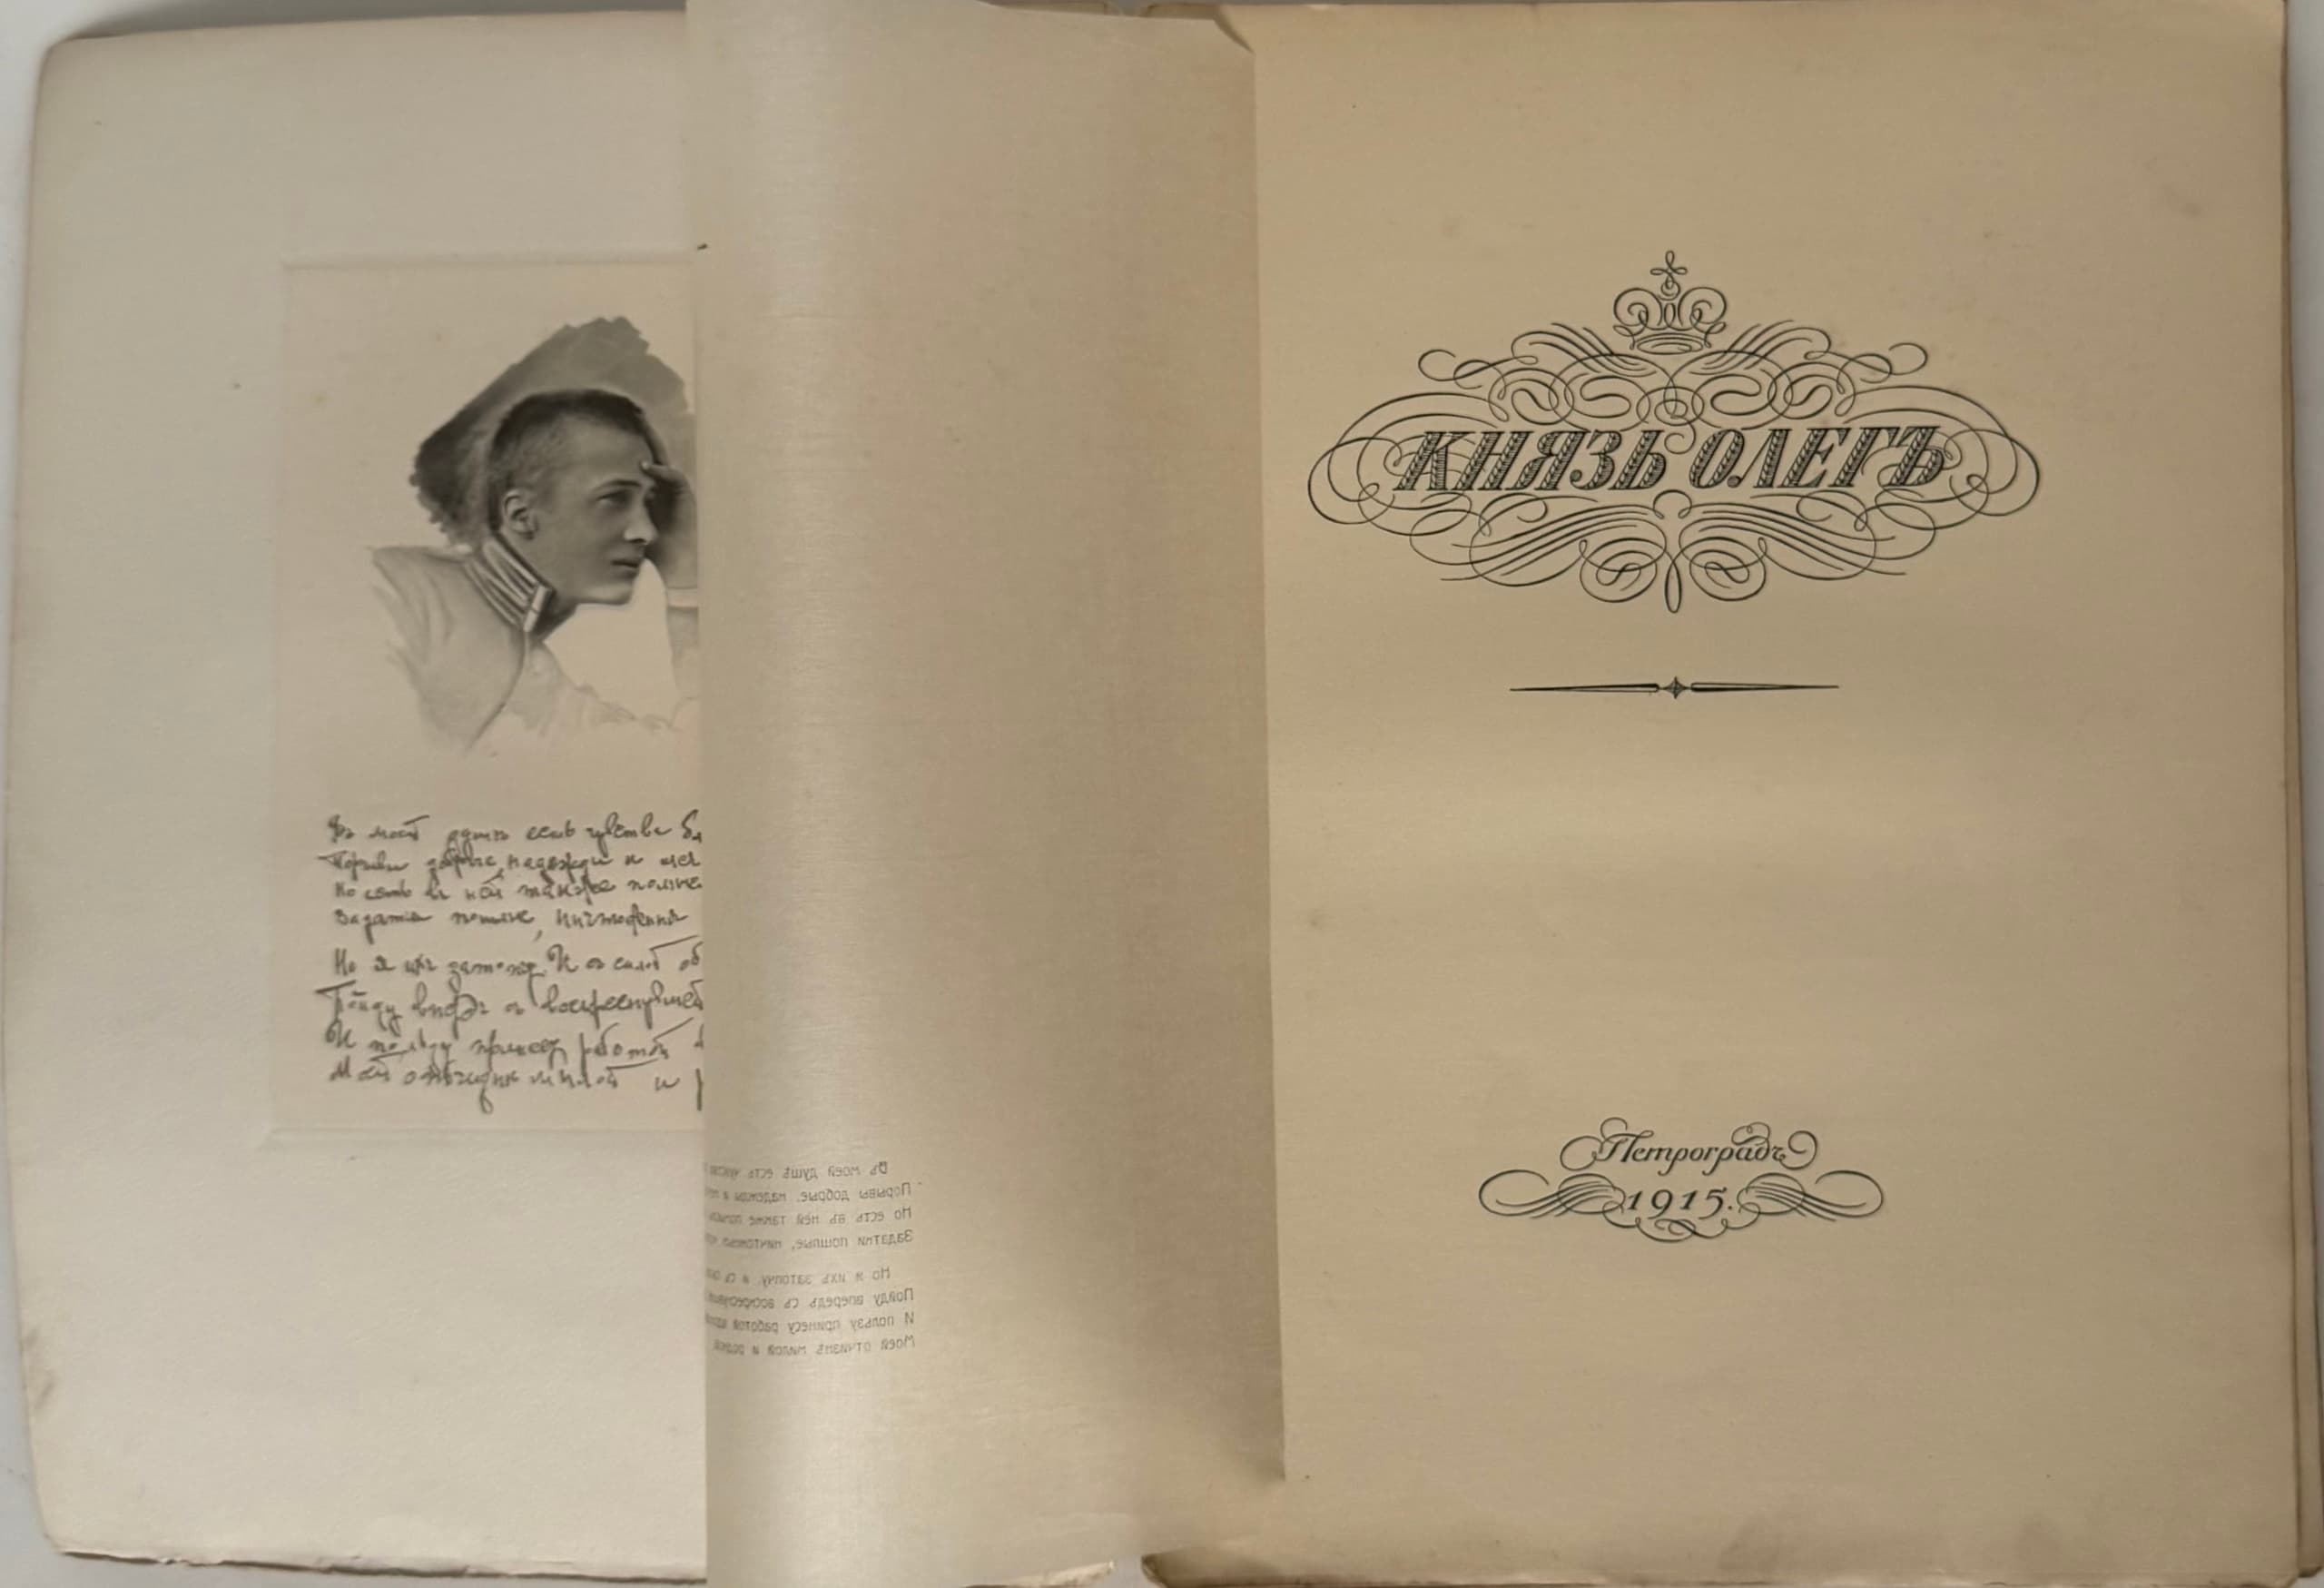 Въ моей душѣ есть чувства
Порывы добрые, надежды и
Но есть въ ней также
Задатки пошлые,
Но я ихъ затопчу. И съ силой
Пойду впередъ съ воскреснувшей
И пользу принесу работой
Моей отчизнѣ милой и
Въ моей душѣ есть
Порывы добрые, надежды и
Но есть въ ней также
Задатки пошлые,
Но я ихъ затопчу, и съ
Пойду впередъ съ
И пользу принесу работой
Моей отчизнѣ милой и
КНЯЗЬ ОЛЕГЪ
Петроградъ
1915.